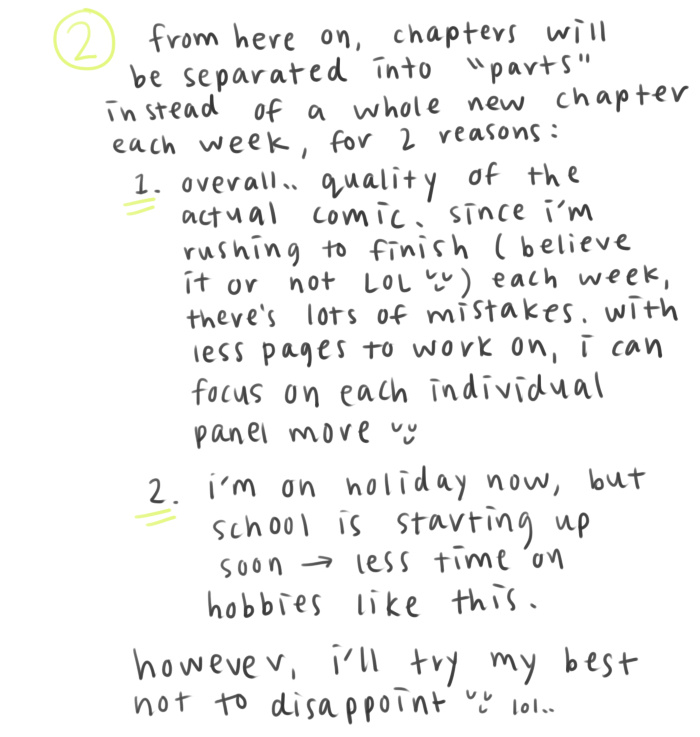 2 from here on, chapters will
be separated into "parts"
instead of a whole new chapter
each week, for 2 reasons:
1. overall.. quality of the
actual comic. since i'm
rushing to finish (believe
it or not LOL ) each week,
there's lots of mistakes. with
less pages to work on, i can
focus on each individual
panel more
2. i'm on holiday now, but
school is starting up
soon → less time on
hobbies like this.
however, i'll try my best
not to disappoint lol..